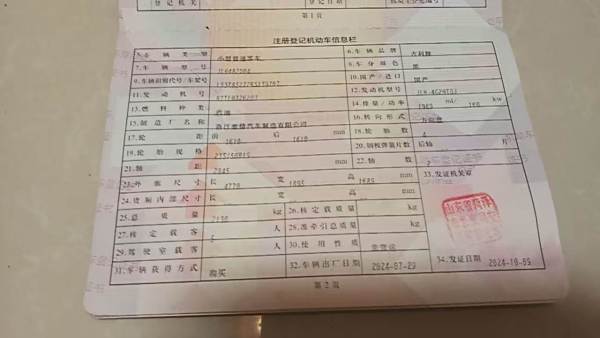 登记机关
登记日期
第1页
注册登记机动车信息栏
5.车辆类型 小型普通客车 6.车辆品牌
7.车辆型号 8.车身颜色 黑
9.车辆识别代号/车架号 10.国产/进口 国产
11.发动机号 12.发动机型号
13.燃料种类 汽油 14.排量/功率 ml/ kw
15.制造厂名称 浙江豪情汽车制造有限公司 16.转向形式 方向盘
17.轮距 前 1610 后 1610 mm 18.轮胎数 4
19.轮胎规格 20.钢板弹簧片数 后轴 片
21.轴距 2845 mm 22.轴数 2
23.外廓尺寸 长 4770 宽 1895 高 1689 mm 33.发证机关章
24.货厢内部尺寸 长 宽 高 mm
25.总质量 kg 26.核定载质量 kg
27.核定载客 5 人 28.准牵引总质量 kg
29.驾驶室载客 人 30.使用性质 非营运
31.车辆获得方式 购买 32.车辆出厂日期 2024-07-29 34.发证日期 2024-10-09
第2页